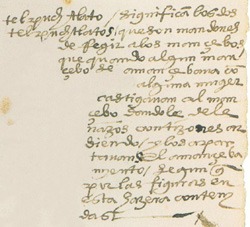 telpuchtlato / significa los dos
telpuchtlatos, que son mandones
de regir a los mançebos
que quando algun man
çebo se amançebava con
alguna muger
castigavan al man
çebo dandole de le
ñazos con tizones ar
diendo / y los apar
tavan del amançeba
miento / segun q̄
por las figuras en
esta hazera conteni
das